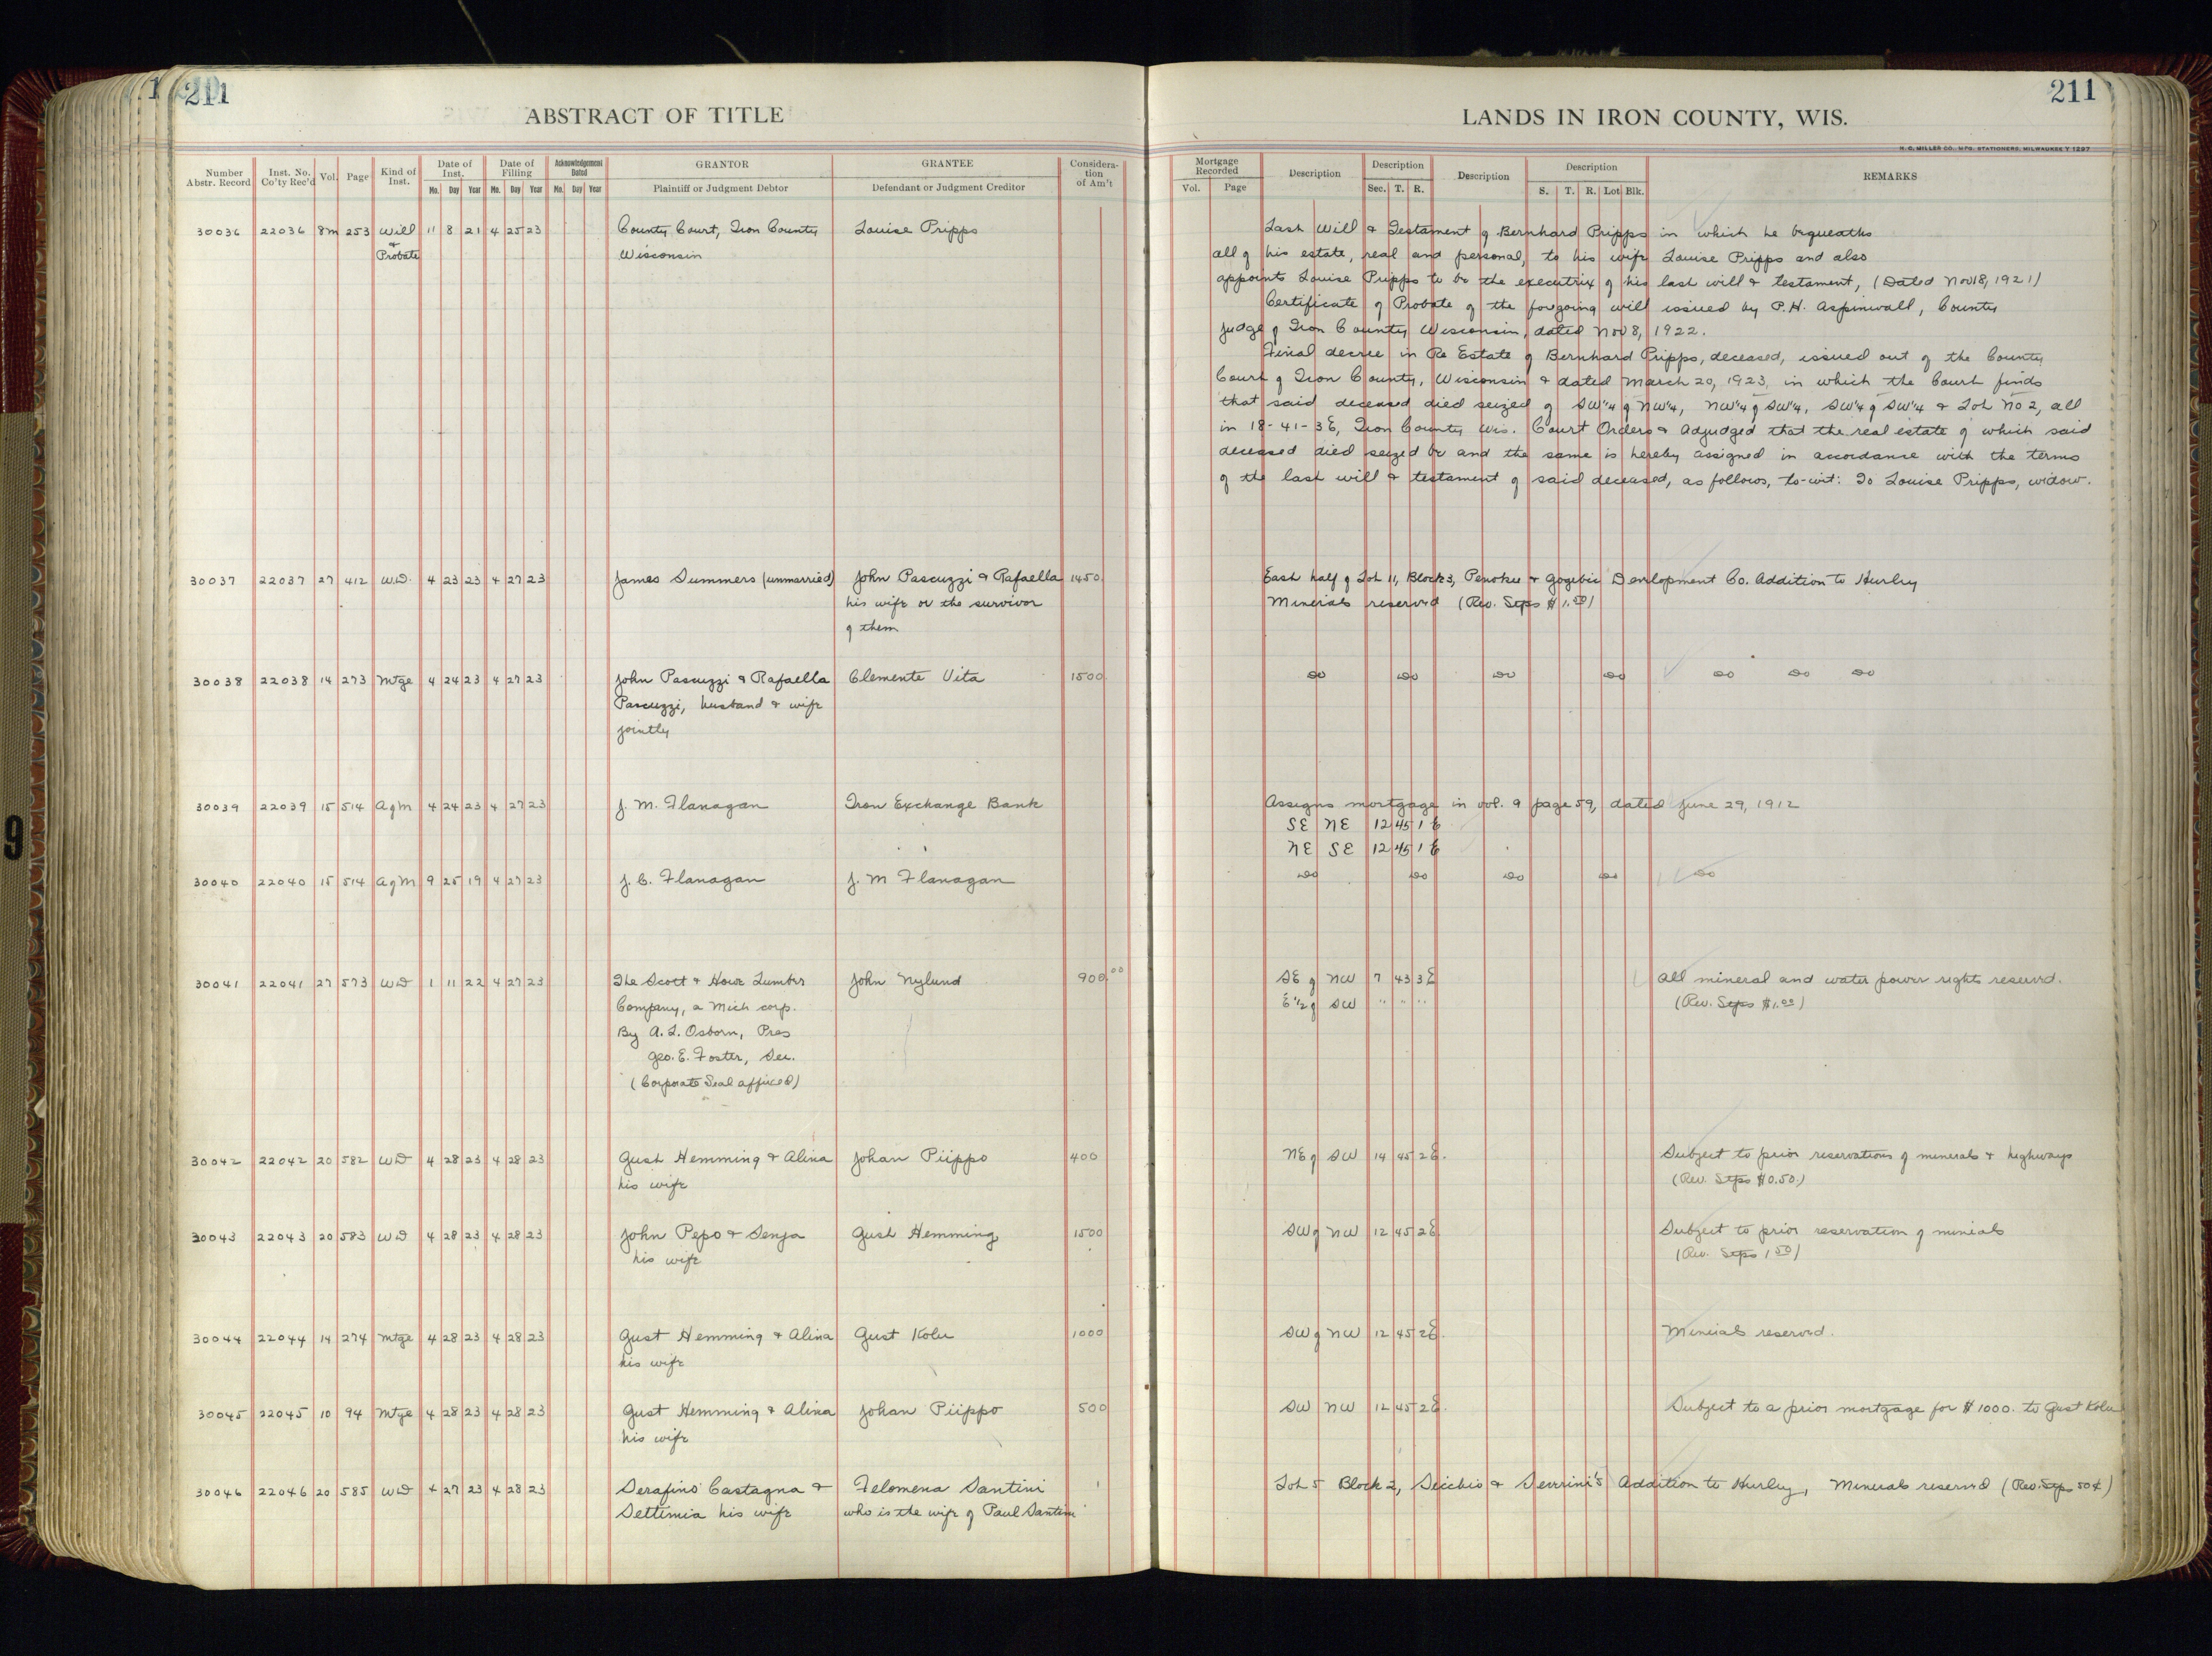 211
ABSTRACT OF TITLE
Number Abstr. Record | Inst. No. Co'ty Rec'd | Vol. | Page | Kind of Inst. | Date of Inst. Mo. Day Year | Date of Filing Mo. Day Year | Acknowledgement Dated Mo. Day Year | GRANTOR Plaintiff or Judgment Debtor | GRANTEE Defendant or Judgment Creditor | Consideration of Am't
30036 22036 8m 253 Will 11 8 21 4 25 23 County Court, Iron County Louise Pripps
& Probate Wisconsin
30037 22037 27 412 W.D. 4 23 23 4 27 23 James Summers (unmarried) John Pascuzzi & Rafaella 1450
his wife or the survivor
of them
30038 22038 14 273 Mtge 4 24 23 4 27 23 John Pascuzzi & Rafaella Clemente Vita 1500
Pascuzzi, husband & wife
jointly
30039 22039 15 514 AgM 4 24 23 4 27 23 J. M. Flanagan Iron Exchange Bank
30040 22040 15 514 AgM 9 25 19 4 27 23 J. C. Flanagan J. M Flanagan
30041 22041 27 573 WD 1 11 22 4 27 23 The Scott & Howe Lumber John Nylund 900.00
Company, a Mich corp.
By A. L. Osborn, Pres
Geo. E. Foster, Sec.
(Corporate Seal affixed)
30042 22042 20 582 WD 4 28 23 4 28 23 Gust Hemming & Alina Johan Piippo 400
his wife
30043 22043 20 583 WD 4 28 23 4 28 23 John Pepo & Senja Gust Hemming 1500
his wife
30044 22044 14 274 Mtge 4 28 23 4 28 23 Gust Hemming & Alina Gust Kolu 1000
his wife
30045 22045 10 94 Mtge 4 28 23 4 28 23 Gust Hemming & Alina Johan Piippo 500
his wife
30046 22046 20 585 WD 4 27 23 4 28 23 Serafino Castagna & Felomena Santini 1
Settimia his wife who is the wife of Paul Santini
211
LANDS IN IRON COUNTY, WIS.
H. C. MILLER CO., MFG. STATIONERS, MILWAUKEE
Mortgage Recorded Vol. Page | Description | Description Sec. T. R. | Description | Description S. T. R. Lot Blk. | REMARKS
Last Will & Testament of Bernhard Pripps in which he bequeaths
all of his estate, real and personal, to his wife Louise Pripps and also
appoints Louise Pripps to be the executrix of his last will & testament, (Dated Nov 8, 1921)
Certificate of Probate of the forgoing will issued by P. H. Aspinwall, County
Judge of Iron County Wisconsin, dated Nov 8, 1922.
Final decree in Re Estate of Bernhard Pripps, deceased, issued out of the County
Court of Iron County, Wisconsin & dated March 20, 1923, in which the Court finds
that said deceased died seized of SW1/4 of NW1/4, NW1/4 of SW1/4, SW1/4 of SW1/4 & Lot No 2, all
in 18-41-3E, Iron County Wis. Court Orders & Adjudged that the real estate of which said
deceased died seized be and the same is hereby assigned in accordance with the terms
of the last will & testament of said deceased, as follows, to-wit: To Louise Pripps, widow.
East half of Lot 11, Block 3, Penokee & Gogebic Development Co. Addition to Hurley
Minerals reserved (Rev. Stps $1.50)
do do do do do do do
Assigns mortgage in vol. 9 page 59, dated June 29, 1912
SE NE 12 45 1 E
NE SE 12 45 1 E
do do do do do
SE of NW 7 43 3E All mineral and water power rights reserved.
E 1/2 of SW " " " (Rev. Stps $1.00)
NE of SW 14 45 2E. Subject to prior reservations of minerals & highways
(Rev. Stps $0.50)
SW of NW 12 45 2E Subject to prior reservation of minerals
(Rev. Stps 1.50)
SW of NW 12 45 2E. Minerals reserved.
SW NW 12 45 2E. Subject to a prior mortgage for $1000. to Gust Kolu
Lot 5 Block 2, Secchio & Severini's Addition to Hurley, Minerals reserved (Rev. Stps 50¢)
9